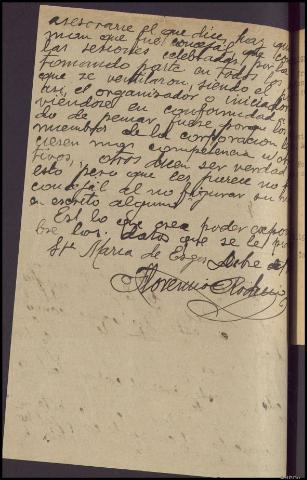 asesorarse el que dice haz
mian que fue concejal
las sesiones celebradas por la
tomando parte en todos los
que se ventilaron, siendo el
el organizador o iniciador
viendose en conformidad
do de pensar fuese porque los
miembros de la corporacion
ciesen mas competencia u o
tivos, otros dicen ser verdad
esto pero que les parece no f
concejal al no figurar su
en escrito alguno.
Es lo que creo poder expon
bre los datos que se le
Sta Maria de Esgos
Florencio